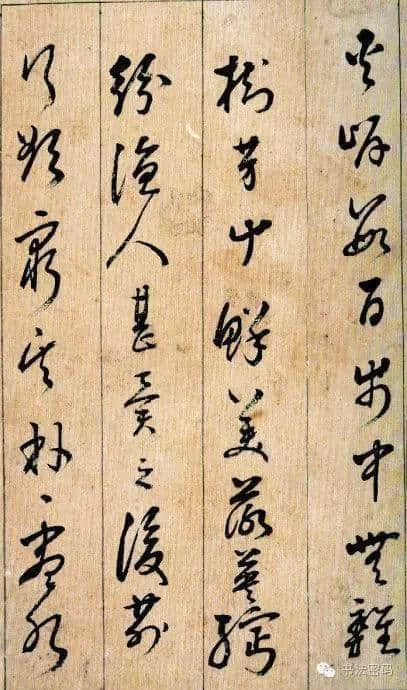 夾岸數百步中無雜
樹芳艸鮮美落英繽
紛漁人甚異之復前
行欲窮其林〻盡水
书法密码